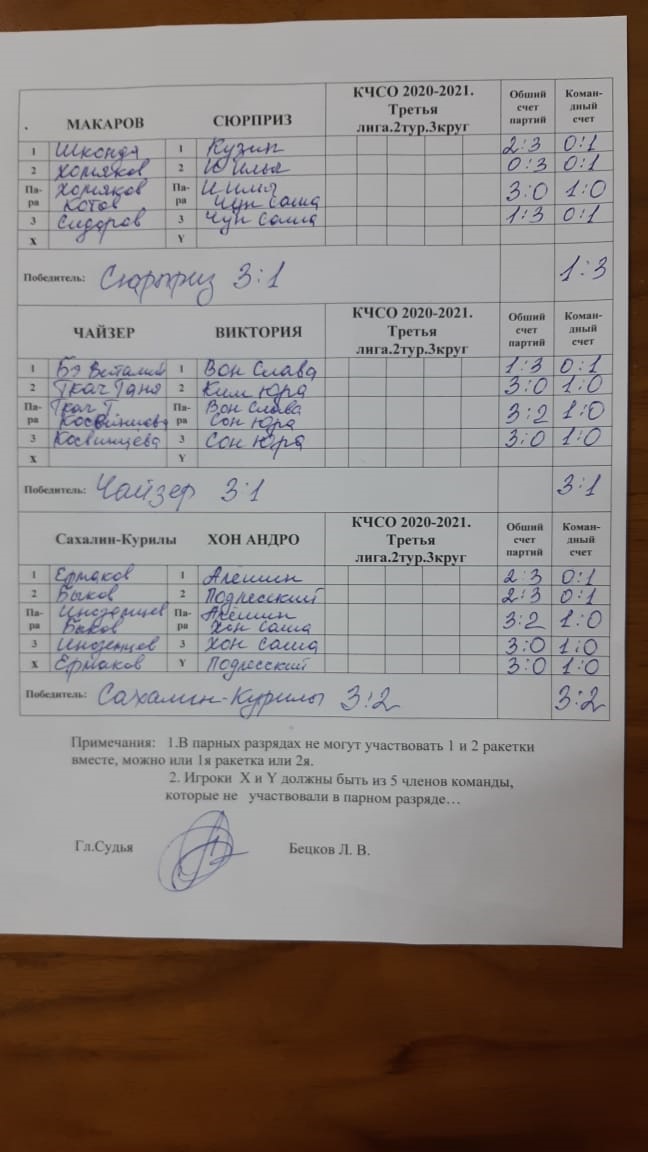 . МАКАРОВ СЮРПРИЗ КЧСО 2020-2021. Третья лига.2тур.3круг Обший счет партий Коман-дный счет
1 Шконда 1 Кузин 2:3 0:1
2 Хомяков 2 И Илья 0:3 0:1
Па-ра Хомяков Котов Па-ра И Илья Чун Саша 3:0 1:0
3 Сидоров 3 Чун Саша 1:3 0:1
X Y
Победитель: Сюрприз 3:1 1:3
ЧАЙЗЕР ВИКТОРИЯ КЧСО 2020-2021. Третья лига.2тур.3круг Обший счет партий Коман-дный счет
1 Бэ Виталий 1 Вон Слава 1:3 0:1
2 Ткач Таня 2 Ким Юра 3:0 1:0
Па-ра Ткач Т Па-ра Вон Слава Сон Юра 3:2 1:0
3 Косвинцева 3 Сон Юра 3:0 1:0
X Y
Победитель: Чайзер 3:1 3:1
Сахалин-Курилы ХОН АНДРО КЧСО 2020-2021. Третья лига.2тур.3круг Обший счет партий Коман-дный счет
1 Ермаков 1 Алёшин 2:3 0:1
2 Быков 2 Подлесский 2:3 0:1
Па-ра Иноземцев Быков Па-ра Алёшин Хон Саша 3:2 1:0
3 Иноземцев 3 Хон Саша 3:0 1:0
X Ермаков Y Подлесский 3:0 1:0
Победитель: Сахалин-Курилы 3:2 3:2
Примечания: 1.В парных разрядах не могут участвовать 1 и 2 ракетки
вместе, можно или 1я ракетка или 2я.
2. Игроки X и Y должны быть из 5 членов команды,
которые не участвовали в парном разряде…
Гл.Судья Бецков Л. В.